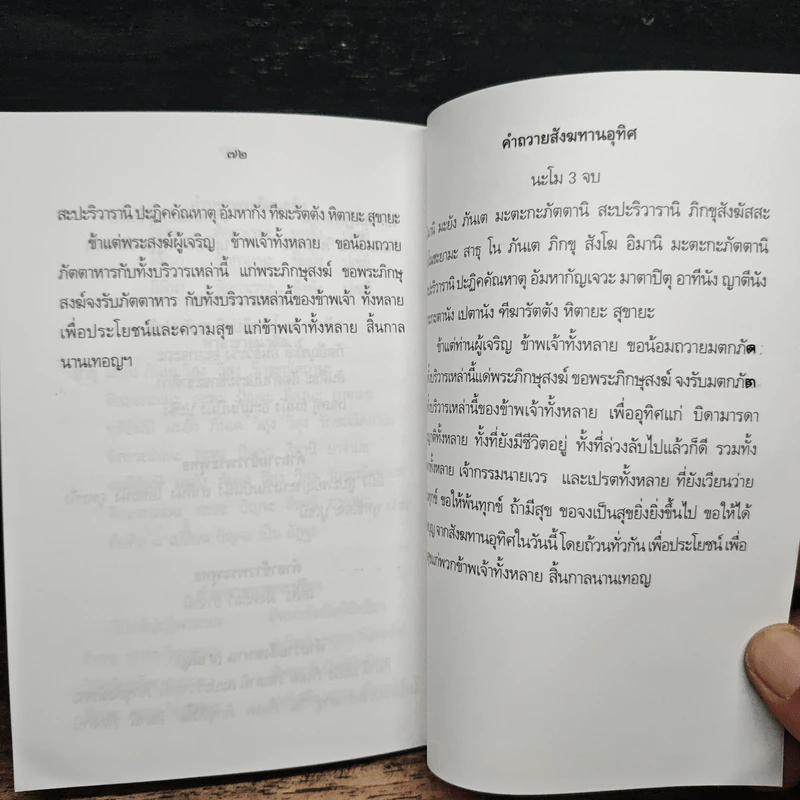 ๗๒
สะปะริวารานิ ปะฏิคคัณหาตุ อัมหากัง ทีฆะรัตตัง หิตายะ สุขายะ
ข้าแต่พระสงฆ์ผู้เจริญ ข้าพเจ้าทั้งหลาย ขอน้อมถวาย
ภัตตาหารกับทั้งบริวารเหล่านี้ แก่พระภิกษุสงฆ์ ขอพระภิกษุ
สงฆ์จงรับภัตตาหาร กับทั้งบริวารเหล่านี้ของข้าพเจ้า ทั้งหลาย
เพื่อประโยชน์และความสุข แก่ข้าพเจ้าทั้งหลาย สิ้นกาล
นานเทอญฯ
คำถวายสังฆทานอุทิศ
นะโม 3 จบ
มะยัง ภันเต มะตะกะภัตตานิ สะปะริวารานิ ภิกขุสังฆัสสะ
สาธุ โน ภันเต ภิกขุ สังโฆ อิมานิ มะตะกะภัตตานิ
ปะฏิคคัณหาตุ อัมหากัญเจวะ มาตาปิตุ อาทีนัง ญาตีนัง
เปตานัง ฑีฆารัตตัง หิตายะ สุขายะ
ข้าแต่ท่านผู้เจริญ ข้าพเจ้าทั้งหลาย ขอน้อมถวายมตกภัต
บริวารเหล่านี้แด่พระภิกษุสงฆ์ ขอพระภิกษุสงฆ์ จงรับมตกภัต
บริวารเหล่านี้ของข้าพเจ้าทั้งหลาย เพื่ออุทิศแก่ บิดามารดา
ทั้งหลาย ทั้งที่ยังมีชีวิตอยู่ ทั้งที่ล่วงลับไปแล้วก็ดี รวมทั้ง
ทั้งหลาย เจ้ากรรมนายเวร และเปรตทั้งหลาย ที่ยังเวียนว่าย
ขอให้พ้นทุกข์ ถ้ามีสุข ขอจงเป็นสุขยิ่งยิ่งขึ้นไป ขอให้ได้
จากสังฆทานอุทิศในวันนี้ โดยถ้วนทั่วกัน เพื่อประโยชน์ เพื่อ
แก่พวกข้าพเจ้าทั้งหลาย สิ้นกาลนานเทอญ